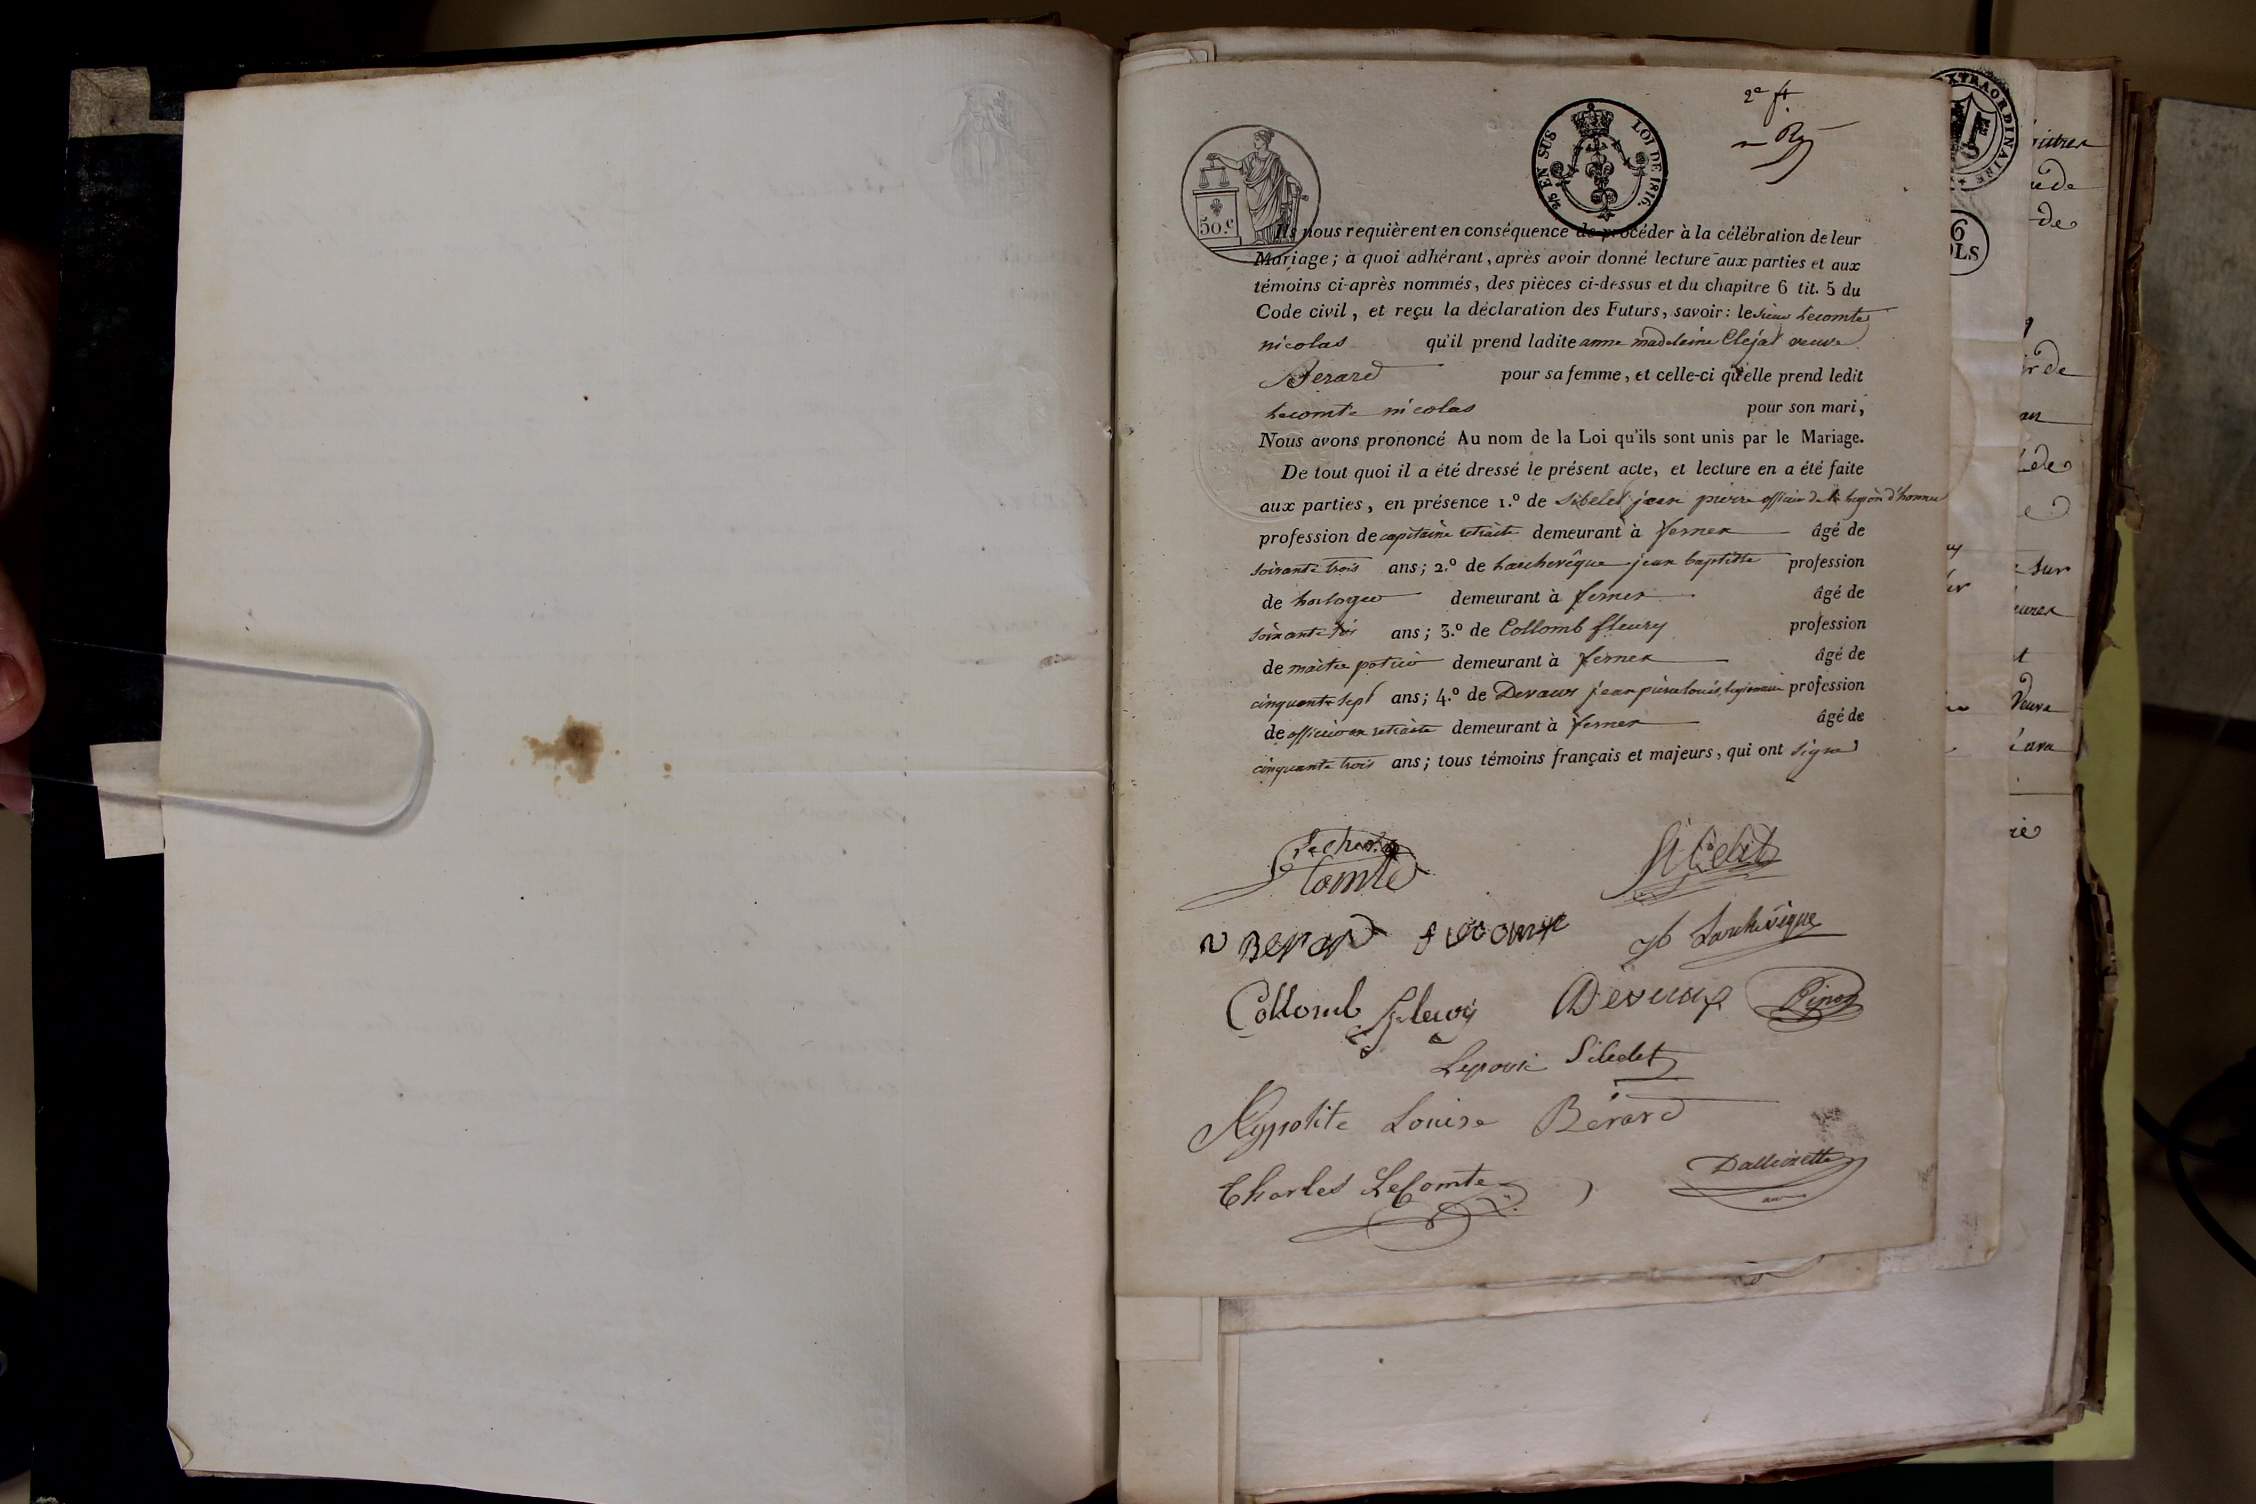 2e ft
50.c
25 EN SUS LOI DE 1816.
EXTRAORDINAIRE
Ils nous requièrent en conséquence de procéder à la célébration de leur
Mariage; à quoi adhérant, après avoir donné lecture aux parties et aux
témoins ci-après nommés, des pièces ci-dessus et du chapitre 6 tit. 5 du
Code civil, et reçu la déclaration des Futurs, savoir: le sieur Lecomte
nicolas qu'il prend ladite anne madelaine Cléjat veuve
Berard pour sa femme, et celle-ci qu'elle prend ledit
Lecomte nicolas pour son mari,
Nous avons prononcé Au nom de la Loi qu'ils sont unis par le Mariage.
De tout quoi il a été dressé le présent acte, et lecture en a été faite
aux parties, en présence 1.º de Sibelet jean pierre officier de la legion d'honneur
profession de capitaine retraite demeurant à fernex âgé de
soixante trois ans; 2.º de Larchevêque jean baptiste profession
de horloger demeurant à fernex âgé de
soixante ans; 3.º de Collomb fleury profession
de maitre potier demeurant à fernex âgé de
cinquante sept ans; 4.º de Devaux jean pierre louis, legionnaire profession
de officier en retraite demeurant à fernex âgé de
cinquante trois ans; tous témoins français et majeurs, qui ont signé
Comte
Sibelet
v Berard f Lecomte
jb Larchevêque
Collomb fleury Devaux
Sibelet
Hyppolite Louise Bérard
Charles LeComte
6
OLS
ue de
de
ir de
sur
Veuve